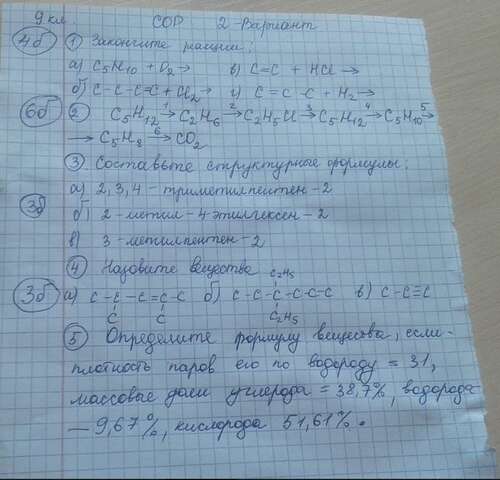 9 кл. СОР 2-Вариант
4б ① Закончите реакции:
а) C5H10 + O2 → в) C=C + HCl →
б) C-C-C-C=C + Cl2 → г) C=C-C + H2 →
6б ② C5H12 →1 C2H6 →2 C2H5Cl →3 C5H12 →4 C5H10 →5
→ C5H8 →6 CO2
③ Составьте структурные формулы:
а) 2,3,4-триметилпентен-2
3б б) 2-метил-4этилгексен-2
в) 3-метилпентен-2
④ Назовите вещества
C2H5
3б а) C-C-C=C-C б) C-C-C-C-C-C в) C-C≡C
C C C2H5
⑤ Определите формулу вещества, если
плотность паров его по водороду = 31,
массовые доли углерода = 38,7%, водорода
— 9,67%, кислорода 51,61%.